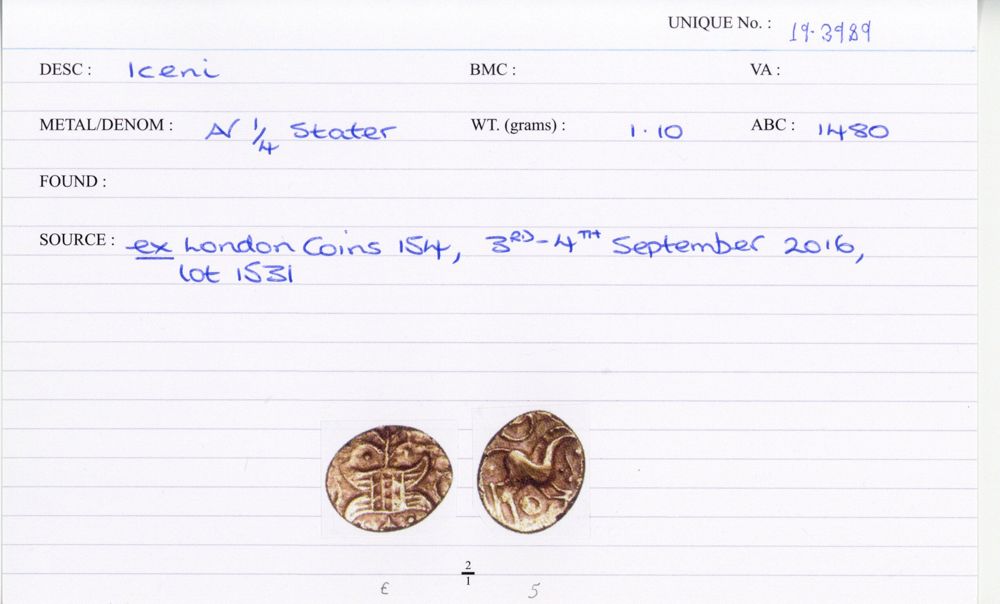 UNIQUE No. : 19·3989
DESC : Iceni BMC : VA :
METAL/DENOM : AV 1/4 Stater WT. (grams) : 1·10 ABC : 1480
FOUND :
SOURCE : ex London Coins 154, 3RD-4TH September 2016,
lot 1531
2/1
€ 5